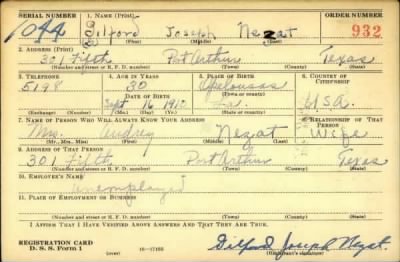 SERIAL NUMBER 1. NAME (Print) ORDER NUMBER
1044 Gilford Joseph Nezat 932
(First) (Middle) (Last)
2. ADDRESS (Print)
301 Fifth Port Arthur Texas
(Number and street or R. F. D. number) (Town) (County) (State)
3. TELEPHONE 4. AGE IN YEARS 5. PLACE OF BIRTH 6. COUNTRY OF CITIZENSHIP
5198 30 Opelousas
DATE OF BIRTH (Town or county)
Sept 16 1910 La. USA
(Exchange) (Number) (Mo.) (Day) (Yr.) (State or country)
7. NAME OF PERSON WHO WILL ALWAYS KNOW YOUR ADDRESS 8. RELATIONSHIP OF THAT PERSON
Mrs. Audrey Nezat Wife
(Mr., Mrs., Miss) (First) (Middle) (Last)
9. ADDRESS OF THAT PERSON
301 Fifth Port Arthur Texas
(Number and street or R. F. D. number) (Town) (County) (State)
10. EMPLOYER'S NAME
unemployed
11. PLACE OF EMPLOYMENT OR BUSINESS
(Number and street or R. F. D. number) (Town) (County) (State)
I AFFIRM THAT I HAVE VERIFIED ABOVE ANSWERS AND THAT THEY ARE TRUE.
REGISTRATION CARD
D. S. S. Form 1 (over) 16—17105 Gilford Joseph Nezat
(Registrant's signature)